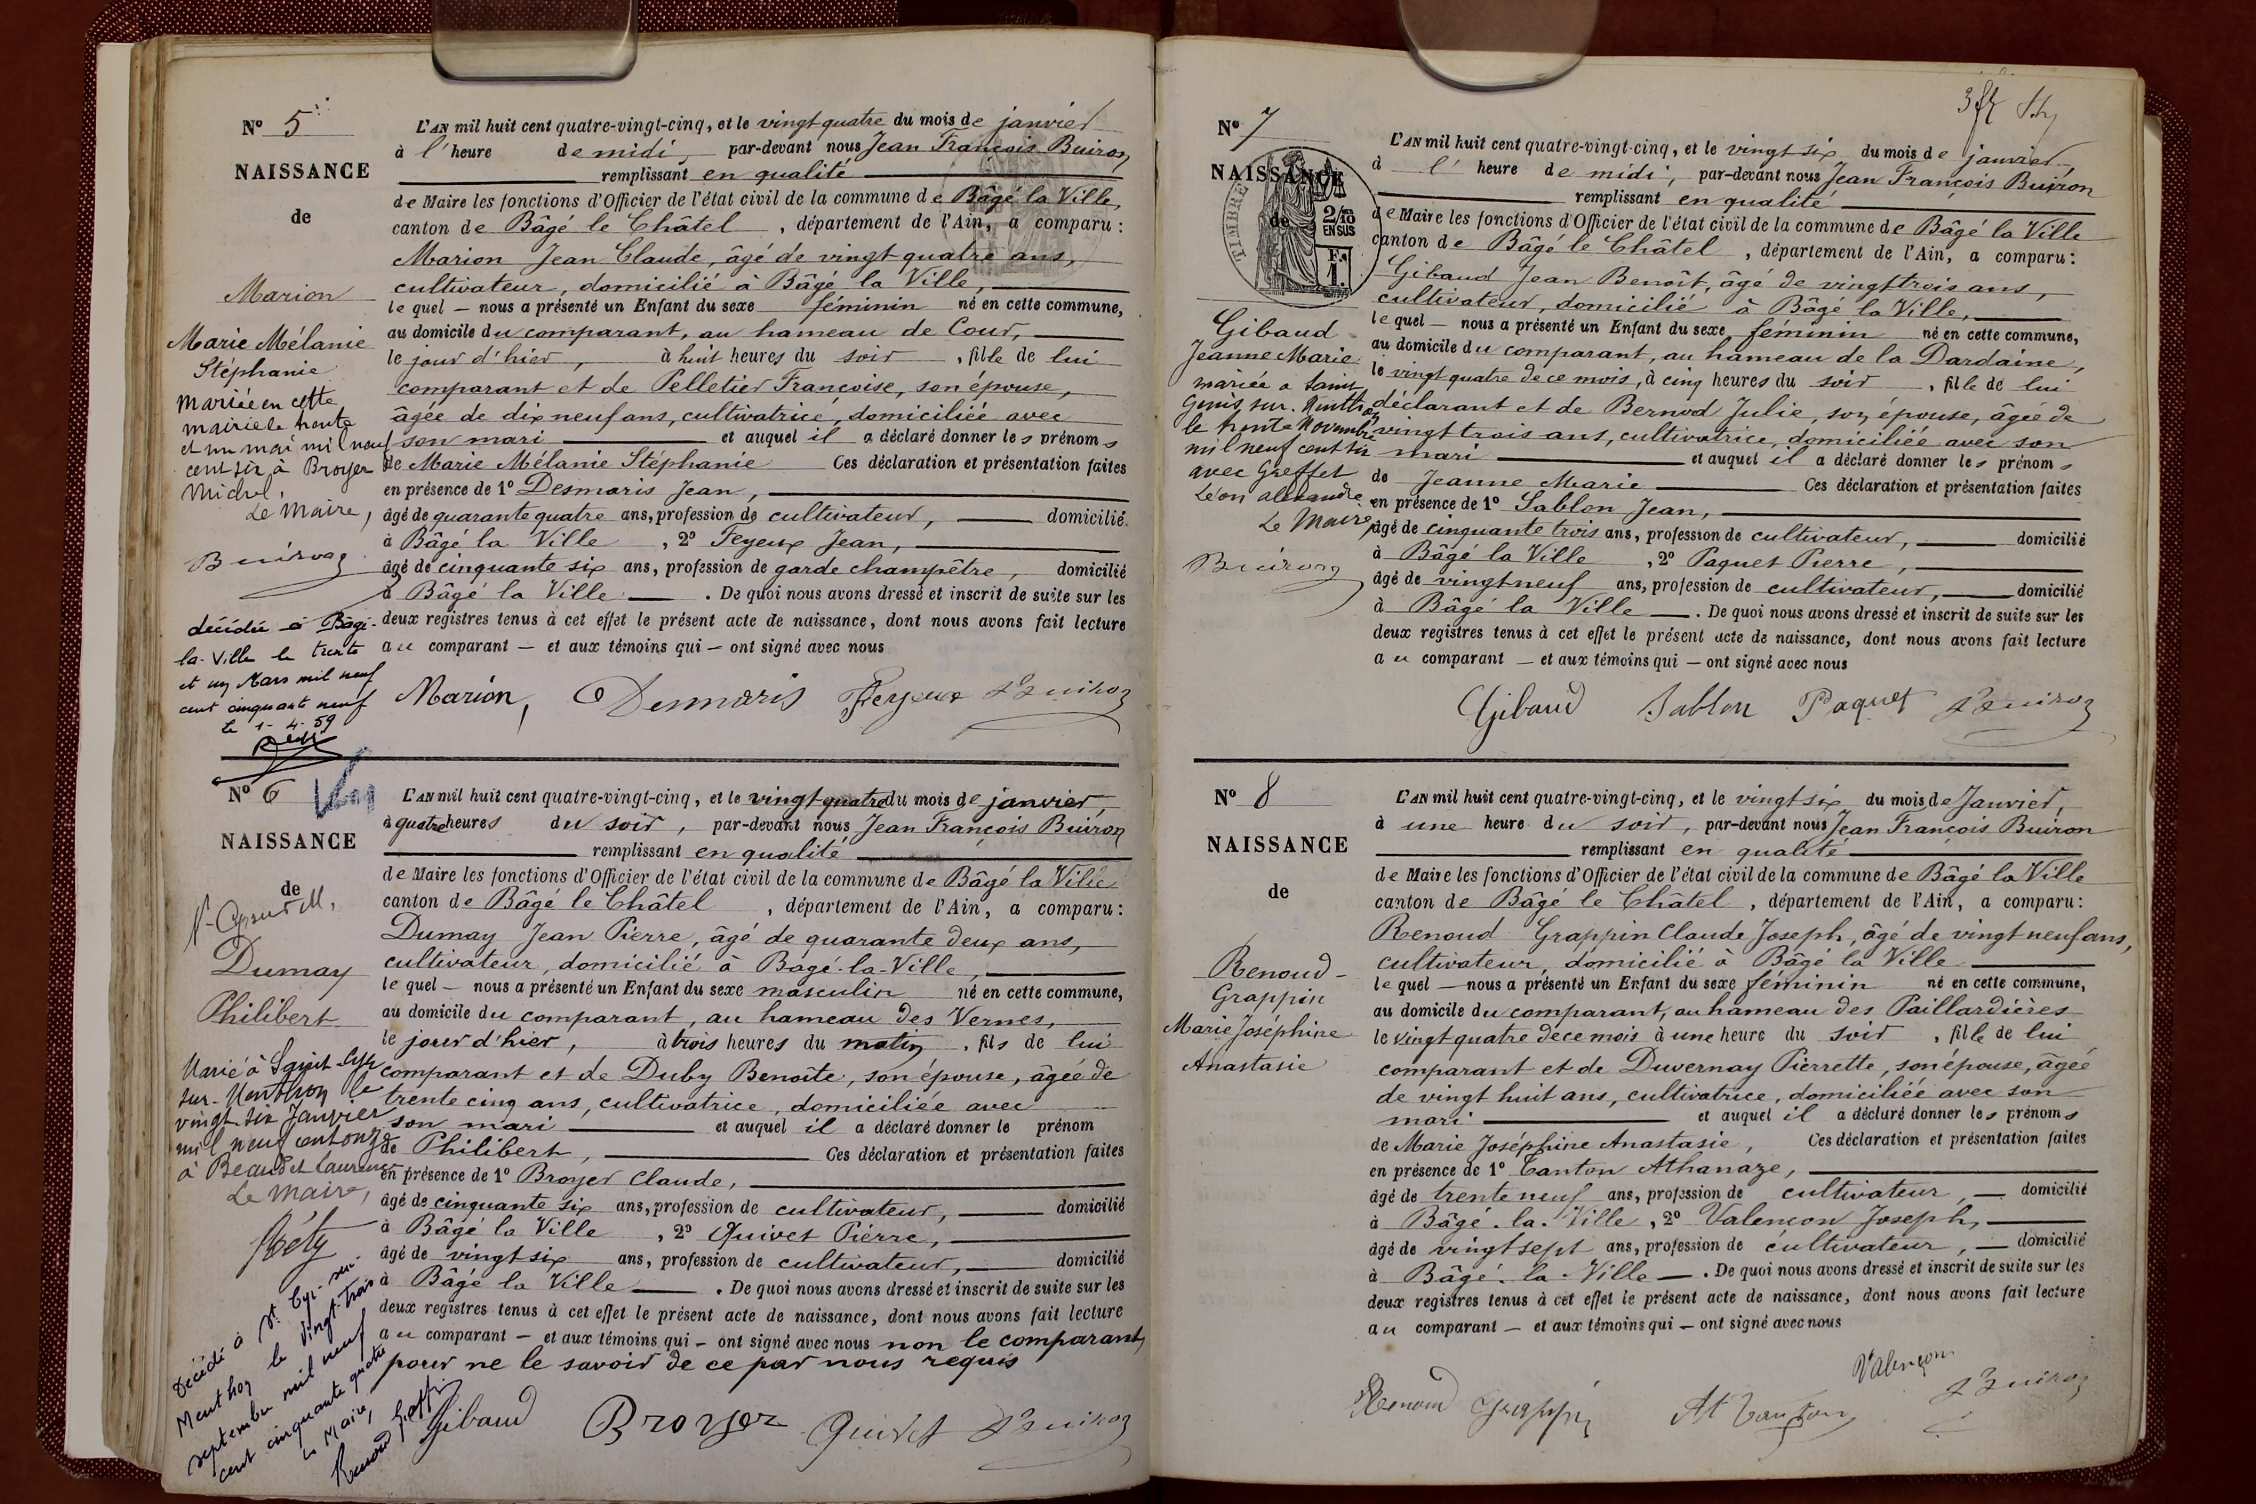 Nº 5
NAISSANCE
de
Marion
Marie Mélanie
Stéphanie
mariée en cette
mairie le trente
et un mai mil neuf
cent six à Broyer
Michel,
Le Maire,
Buiron
décédée à Bâgé-
la-Ville le trente
et un Mars mil neuf
cent cinquante neuf
le 1-4-59
L'AN mil huit cent quatre-vingt-cinq, et le vingt quatre du mois de janvier
à l'heure de midi, par-devant nous Jean François Buiron
remplissant en qualité
de Maire les fonctions d'Officier de l'état civil de la commune de Bâgé la Ville,
canton de Bâgé le Châtel, département de l'Ain, a comparu :
Marion Jean Claude, âgé de vingt quatre ans,
cultivateur, domicilié à Bâgé la Ville,
le quel — nous a présenté un Enfant du sexe féminin né en cette commune,
au domicile du comparant, au hameau de Cour,
le jour d'hier, à huit heures du soir, fille de lui
comparant et de Pelletier Françoise, son épouse,
âgée de dix neuf ans, cultivatrice, domiciliée avec
son mari et auquel il a déclaré donner les prénoms
de Marie Mélanie Stéphanie Ces déclaration et présentation faites
en présence de 1º Desmaris Jean,
âgé de quarante quatre ans, profession de cultivateur, domicilié
à Bâgé la Ville, 2º Feyeux Jean,
âgé de cinquante six ans, profession de garde champêtre, domicilié
à Bâgé la Ville. De quoi nous avons dressé et inscrit de suite sur les
deux registres tenus à cet effet le présent acte de naissance, dont nous avons fait lecture
au comparant — et aux témoins qui — ont signé avec nous
Marion, Desmaris Feyeux Buiron
Nº 6
NAISSANCE
de
Dumay
Philibert
Marié à Saint-Cyr
sur-Menthon le
vingt six Janvier
mil neuf cent onze
à Beaudet Laurence
Le Maire,
Réty
Décédé à St Cyr sur
Menthon le vingt-trois
septembre mil neuf
cent cinquante quatre
Le Maire,
L'AN mil huit cent quatre-vingt-cinq, et le vingt quatre du mois de janvier,
à quatre heures du soir, par-devant nous Jean François Buiron
remplissant en qualité
de Maire les fonctions d'Officier de l'état civil de la commune de Bâgé la Ville
canton de Bâgé le Châtel, département de l'Ain, a comparu :
Dumay Jean Pierre, âgé de quarante deux ans,
cultivateur, domicilié à Bâgé-la-Ville,
le quel — nous a présenté un Enfant du sexe masculin né en cette commune,
au domicile du comparant, au hameau des Vernes,
le jour d'hier, à trois heures du matin, fils de lui
comparant et de Duby Benoîte, son épouse, âgée de
trente cinq ans, cultivatrice, domiciliée avec
son mari et auquel il a déclaré donner le prénom
de Philibert, Ces déclaration et présentation faites
en présence de 1º Broyer Claude,
âgé de cinquante six ans, profession de cultivateur, domicilié
à Bâgé la Ville, 2º Quivet Pierre,
âgé de vingt six ans, profession de cultivateur, domicilié
à Bâgé la Ville. De quoi nous avons dressé et inscrit de suite sur les
deux registres tenus à cet effet le présent acte de naissance, dont nous avons fait lecture
au comparant — et aux témoins qui — ont signé avec nous non le comparant
pour ne le savoir de ce par nous requis
Gibaud Broyer Quivet Buiron
Nº 7
NAISSANCE
de
TIMBRE
2/10
EN SUS
F.
1.
Gibaud
Jeanne Marie
mariée à Saint
Genis sur Menthon
le trente Novembre
mil neuf cent six
avec Greffet
Léon Alexandre
Le Maire,
Buiron
L'AN mil huit cent quatre-vingt-cinq, et le vingt six du mois de janvier,
à l'heure de midi, par-devant nous Jean François Buiron
remplissant en qualité
de Maire les fonctions d'Officier de l'état civil de la commune de Bâgé la Ville
canton de Bâgé le Châtel, département de l'Ain, a comparu :
Gibaud Jean Benoît, âgé de vingt trois ans,
cultivateur, domicilié à Bâgé la Ville,
le quel — nous a présenté un Enfant du sexe féminin né en cette commune,
au domicile du comparant, au hameau de la Dardaine,
le vingt quatre de ce mois, à cinq heures du soir, fille de lui
déclarant et de Bernod Julie, son épouse, âgée de
vingt trois ans, cultivatrice, domiciliée avec son
mari et auquel il a déclaré donner les prénoms
de Jeanne Marie Ces déclaration et présentation faites
en présence de 1º Sablon Jean,
âgé de cinquante trois ans, profession de cultivateur, domicilié
à Bâgé la Ville, 2º Paquet Pierre,
âgé de vingt neuf ans, profession de cultivateur, domicilié
à Bâgé la Ville. De quoi nous avons dressé et inscrit de suite sur les
deux registres tenus à cet effet le présent acte de naissance, dont nous avons fait lecture
au comparant — et aux témoins qui — ont signé avec nous
Gibaud Sablon Paquet Buiron
Nº 8
NAISSANCE
de
Renoud-
Grappin
Marie Joséphine
Anastasie
L'AN mil huit cent quatre-vingt-cinq, et le vingt six du mois de Janvier,
à une heure du soir, par-devant nous Jean François Buiron
remplissant en qualité
de Maire les fonctions d'Officier de l'état civil de la commune de Bâgé la Ville
canton de Bâgé le Châtel, département de l'Ain, a comparu :
Renoud Grappin Claude Joseph, âgé de vingt neuf ans,
cultivateur, domicilié à Bâgé la Ville
le quel — nous a présenté un Enfant du sexe féminin né en cette commune,
au domicile du comparant, au hameau des Paillardières
le vingt quatre de ce mois à une heure du soir, fille de lui
comparant et de Duvernay Pierrette, son épouse, âgée
de vingt huit ans, cultivatrice, domiciliée avec son
mari et auquel il a déclaré donner les prénoms
de Marie Joséphine Anastasie, Ces déclaration et présentation faites
en présence de 1º Tanton Athanaze,
âgé de trente neuf ans, profession de cultivateur, domicilié
à Bâgé-la-Ville, 2º Valençon Joseph,
âgé de vingt sept ans, profession de cultivateur, domicilié
à Bâgé-la-Ville. De quoi nous avons dressé et inscrit de suite sur les
deux registres tenus à cet effet le présent acte de naissance, dont nous avons fait lecture
au comparant — et aux témoins qui — ont signé avec nous
Valençon
Renoud Grappin At Tanton Buiron